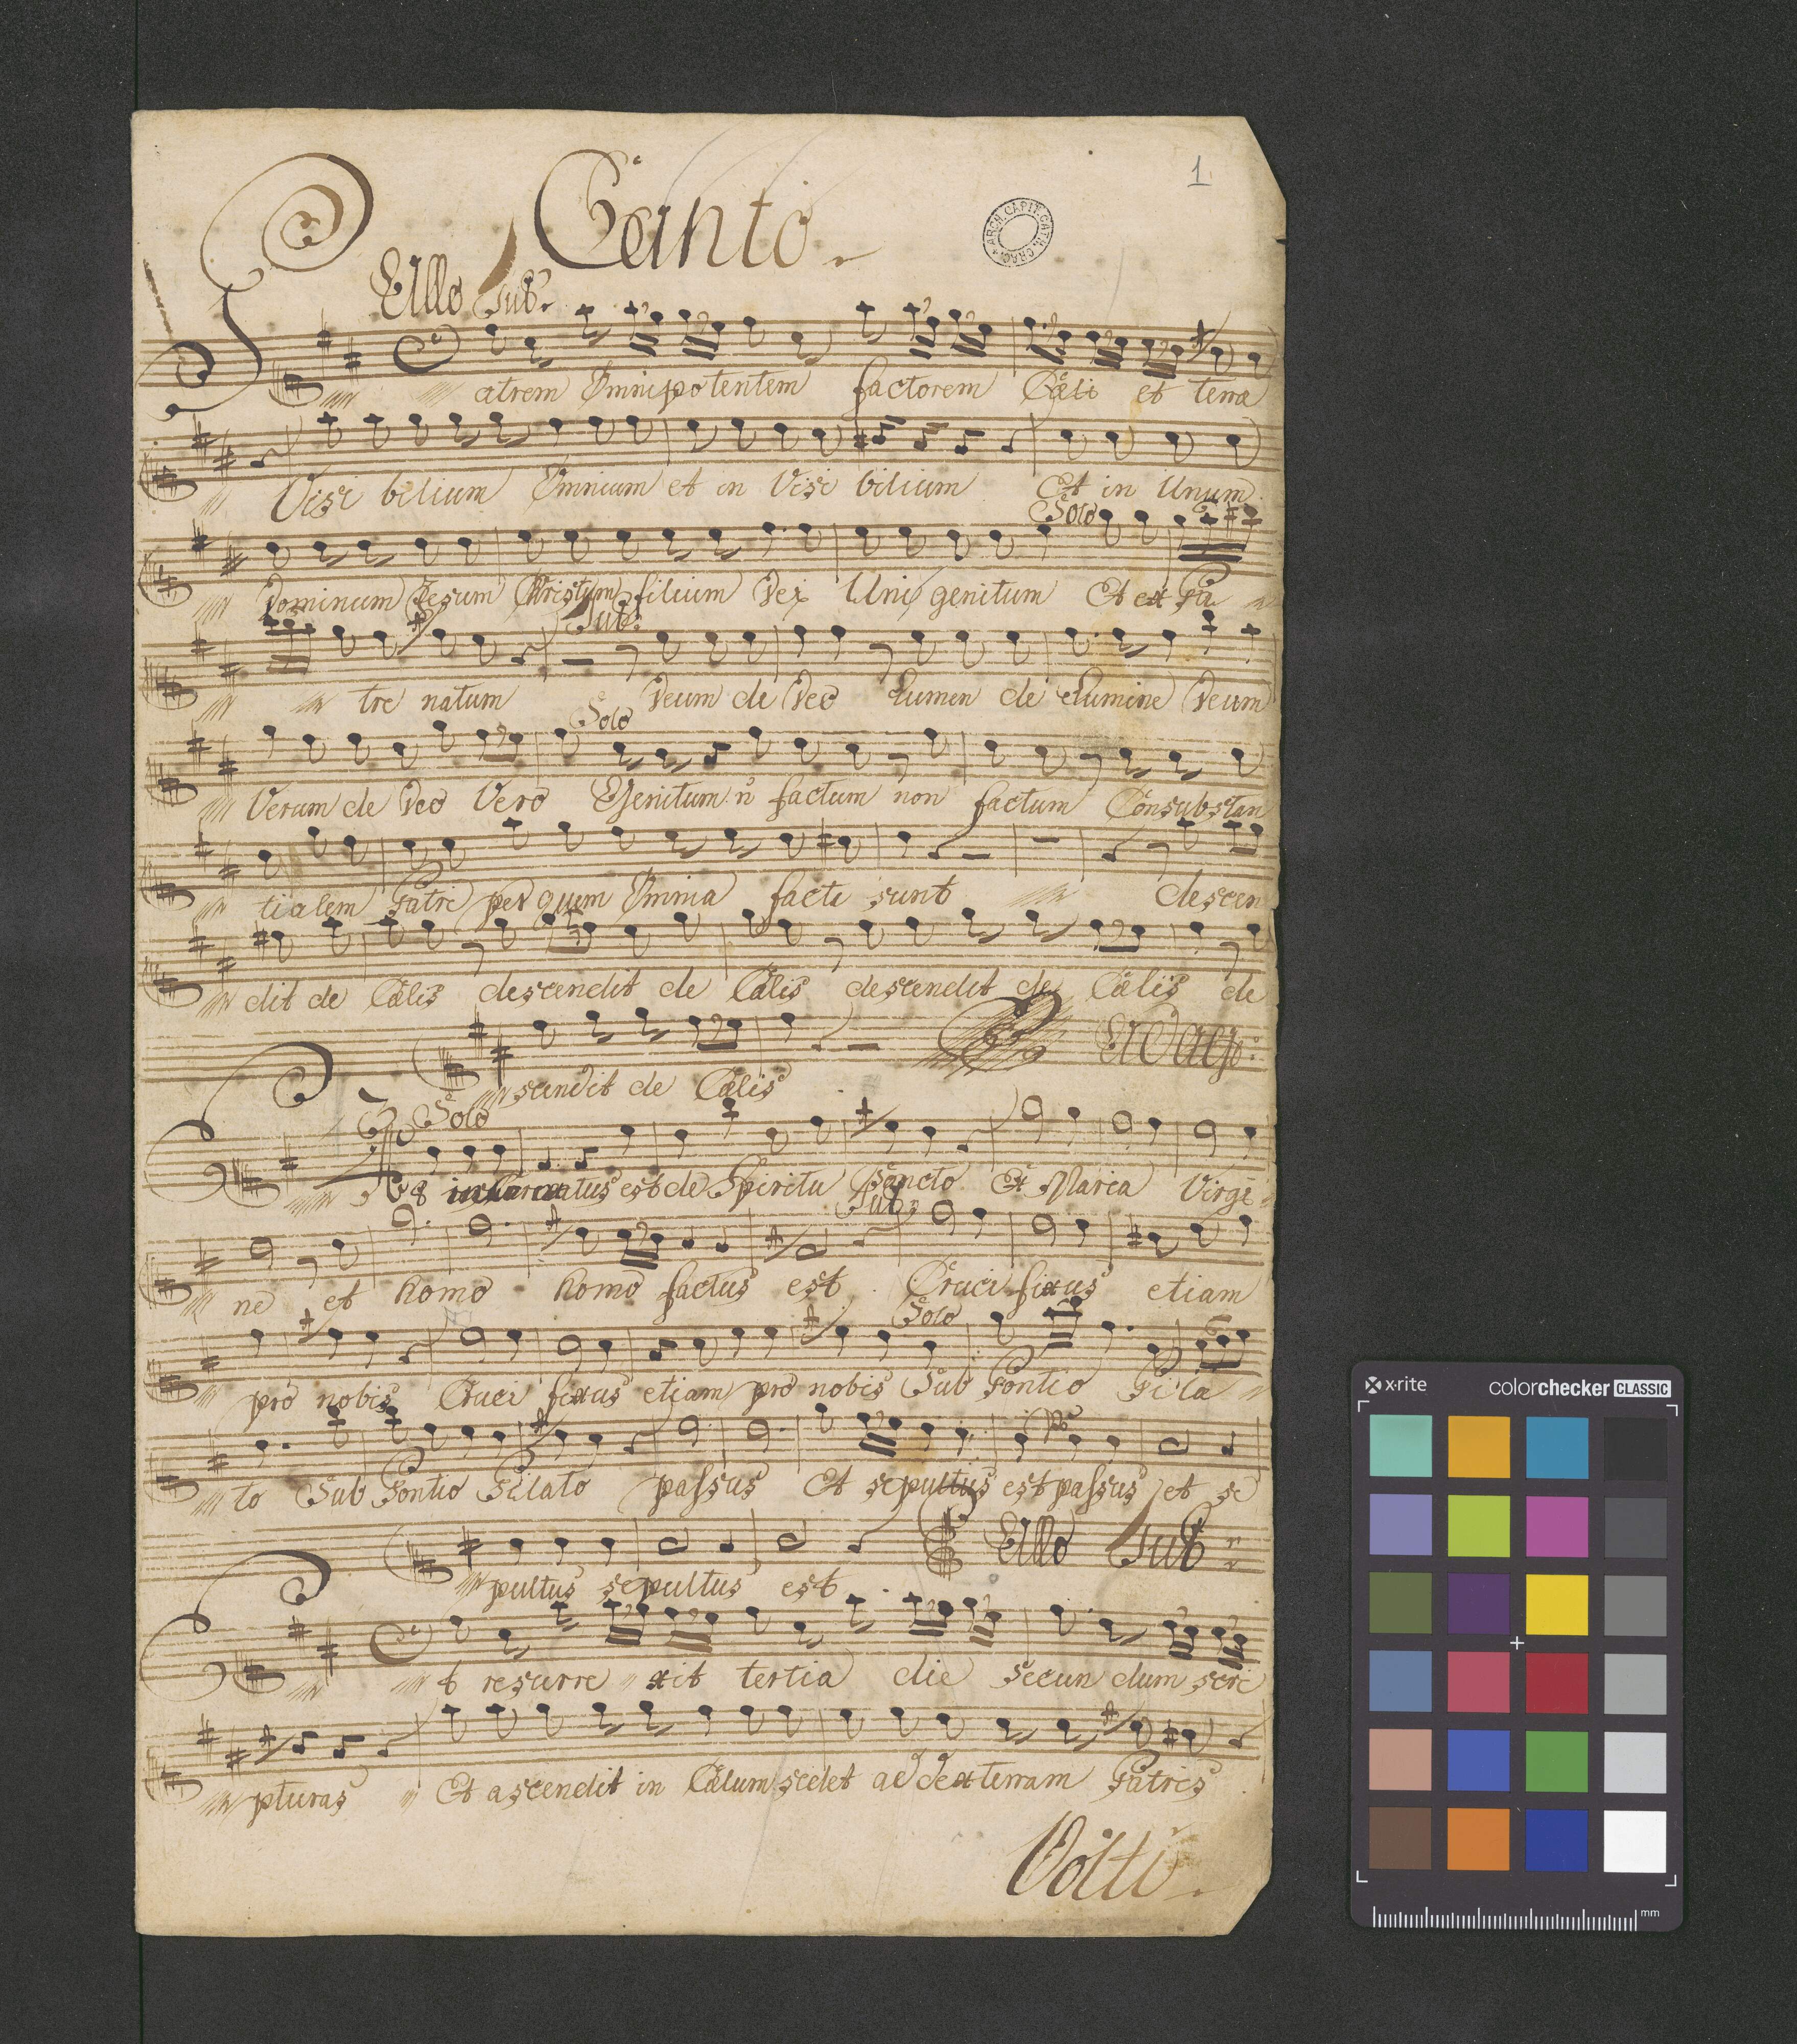 1
Canto
ARCH. CAPIT. CATH. CRAC.
Allo Tutti
Patrem Omnipotentem factorem Cæli et terra
Visi bilium Omnium et in Visi bilium Et in Unum
Solo
Dominum Jesum Christum filium Dei Uni genitum Et ex Pa
Tutti
tre natum Deum de Deo Lumen de Lumine Deum
Solo
Verum de Deo Vero Genitum n factum non factum Consubstan
tialem Patri per quem Omnia facta sunt descen
dit de Cælis descendit de Cælis descendit de Cælis de
scendit de Cælis
Adago
Solo
Et incarnatus est de Spiritu Sancto Ex Maria Virgi
ne et homo homo factus est Cruci fixus etiam
Solo
pro nobis Cruci fixus etiam pro nobis Sub Pontio Pila
to Sub Pontio Pilato passus Et sepultus est passus et se
pultus sepultus est
Allo
t resurre xit tertia die secun dum scri
pturas Et ascendit in Cælum sedet ad dexterram Patris
Volti
x-rite
colorchecker CLASSIC
mm